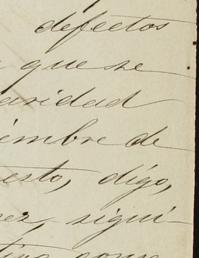 defectos
que se
aridad
iembre de
esto, digo,
ez, sigui-